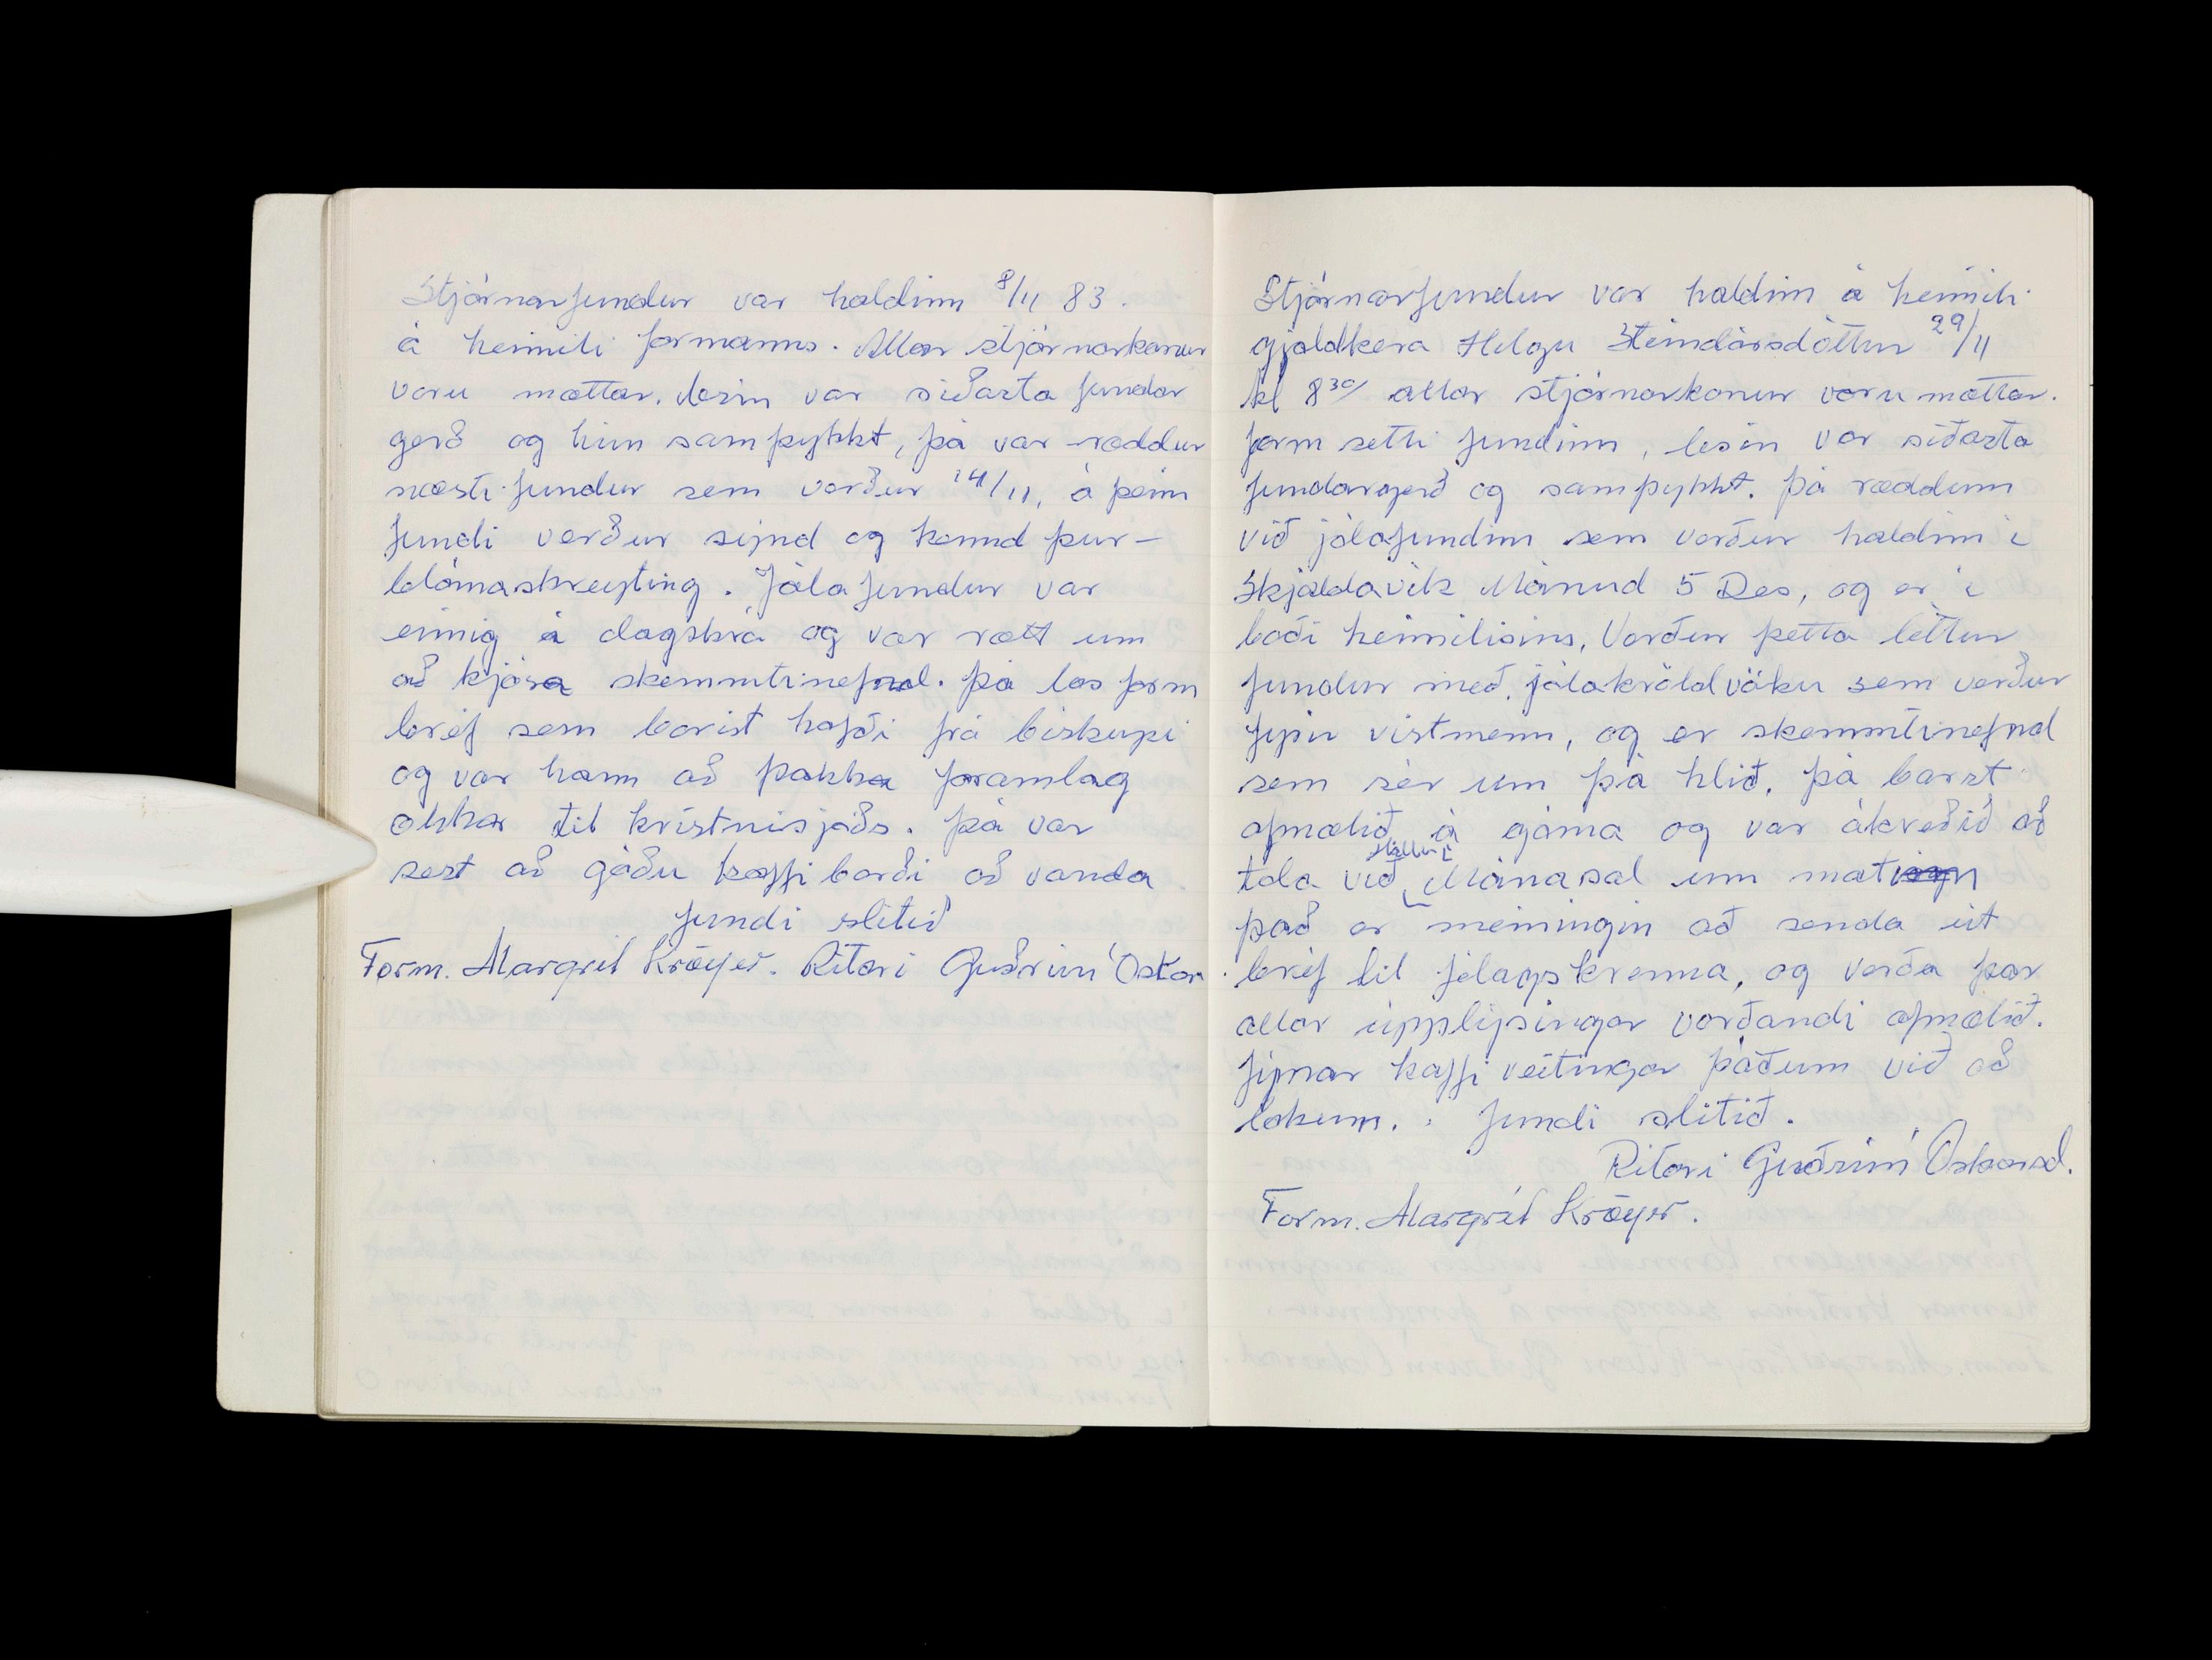 Stjórnarfundur var haldinn 8/11 83.
á heimili formanns. Allar stjórnarkonur
voru mættar. Lesin var síðasta fundar
gerð og hún samþykkt, þá var ræddur
næsti fundur sem verður 14/11, á þeim
fundi verður sýnd og kennd þur-
blómaskreyting. Jólafundur var
einnig á dagskrá og var rætt um
að kjósa skemmtinefnd. þá las form
bréf sem borist hafði frá biskupi
og var hann að þakka framlag
okkar til kristnisjóðs. þá var
sest að góðu kaffiborði að vanda
fundi slitið
Form. Margrét Kröyer. Ritari Guðrún Óskar.
Stjórnarfundur var haldinn á heimili
gjaldkera Helgu Steindórsdóttur 29/11
kl 8 30/ allar stjórnarkonur voru mættar.
form setti fundinn, lesin var síðasta
fundargerð og samþykkt. þá ræddum
við jólafundinn sem verður haldinn í
Skjaldavík Mánud 5 Des, og er í
boði heimilisins, Verður þetta léttur
fundur með jólakvöldvöku sem verður
fyrir vistmenn, og er skemmtinefnd
sem sér um þá hlið. þá barst
afmælið á góma og var ákveðið að
tala við Mánasal um mat
það er meiningin að senda út
bréf til félagskvenna, og verða þar
allar upplýsingar varðandi afmælið.
fínar kaffi veitingar þáðum við að
lokum. fundi slitið.
Ritari Guðrún Óskarsd.
Form. Margrét Kröyer.